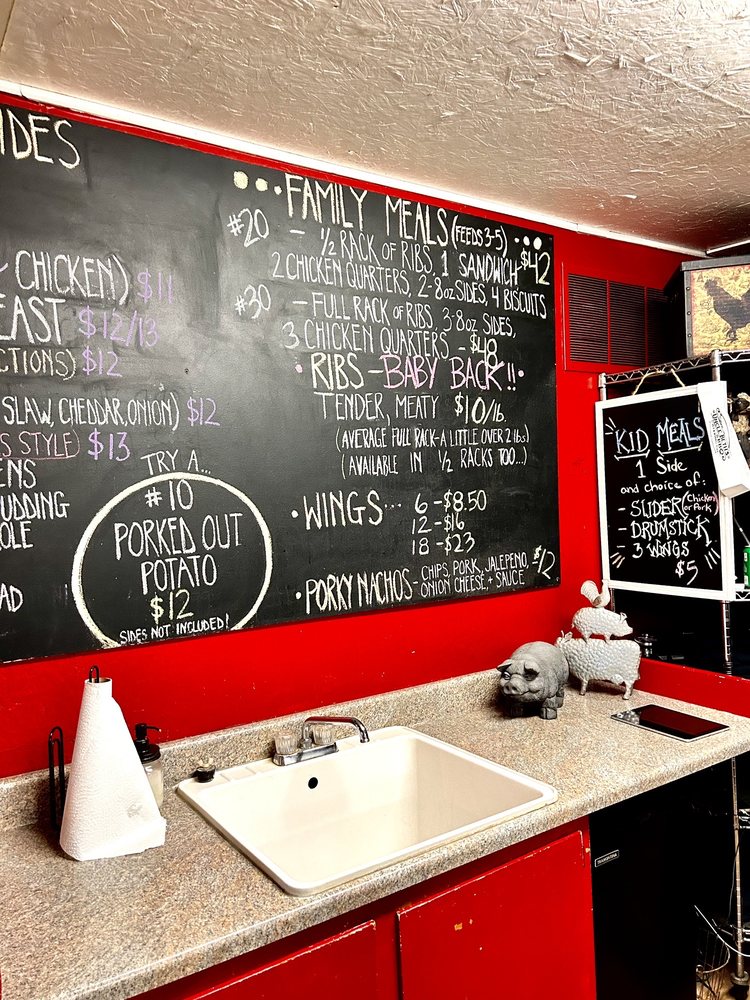 IDES
CHICKEN) $11
EAST $12/13
CTIONS) $12
SLAW, CHEDDAR, ONION) $12
S STYLE) $13
ENS
UDDING
OLE
AD
TRY A...
#10
PORKED OUT
POTATO
$12
SIDES NOT INCLUDED!
FAMILY MEALS (FEEDS 3-5)
#20 - 1/2 RACK OF RIBS, 1 SANDWICH $42
2 CHICKEN QUARTERS, 2-8oz SIDES, 4 BISCUITS
#30 - FULL RACK OF RIBS, 3-8oz SIDES,
3 CHICKEN QUARTERS - $48
RIBS - BABY BACK!!
TENDER, MEATY $10/lb.
(AVERAGE FULL RACK-A LITTLE OVER 2 lbs)
(AVAILABLE IN 1/2 RACKS TOO...)
• WINGS... 6 - $8.50
12 - $16
18 - $23
• PORKY NACHOS - CHIPS, PORK, JALEPENO, $12
ONION CHEESE, + SAUCE
KID MEALS
1 Side
and choice of:
- SLIDER (Chicken or Pork)
- DRUMSTICK
- 3 WINGS
$5